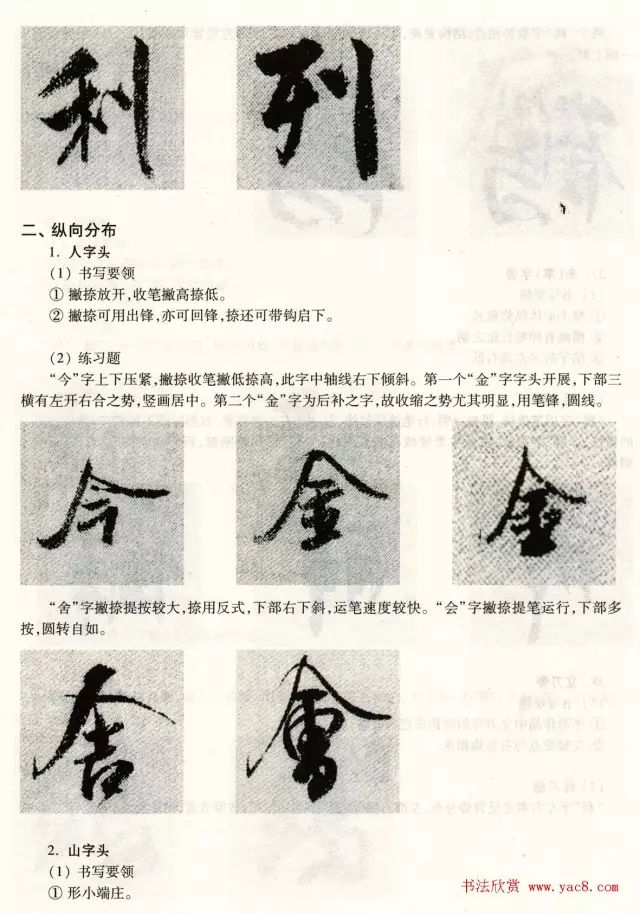 利 列
二、纵向分布
1. 人字头
(1) 书写要领
① 撇捺放开,收笔撇高捺低。
② 撇捺可用出锋,亦可回锋,捺还可带钩启下。
(2) 练习题
“今”字上下压紧,撇捺收笔撇低捺高,此字中轴线右下倾斜。第一个“金”字字头开展,下部三
横有左开右合之势,竖画居中。第二个“金”字为后补之字,故收缩之势尤其明显,用笔锋,圆线。
今 金 金
“舍”字撇捺提按较大,捺用反式,下部右下斜,运笔速度较快。“会”字撇捺提笔运行,下部多
按,圆转自如。
舍 會
2. 山字头
(1) 书写要领
① 形小端庄。
书法欣赏 www.yac8.com